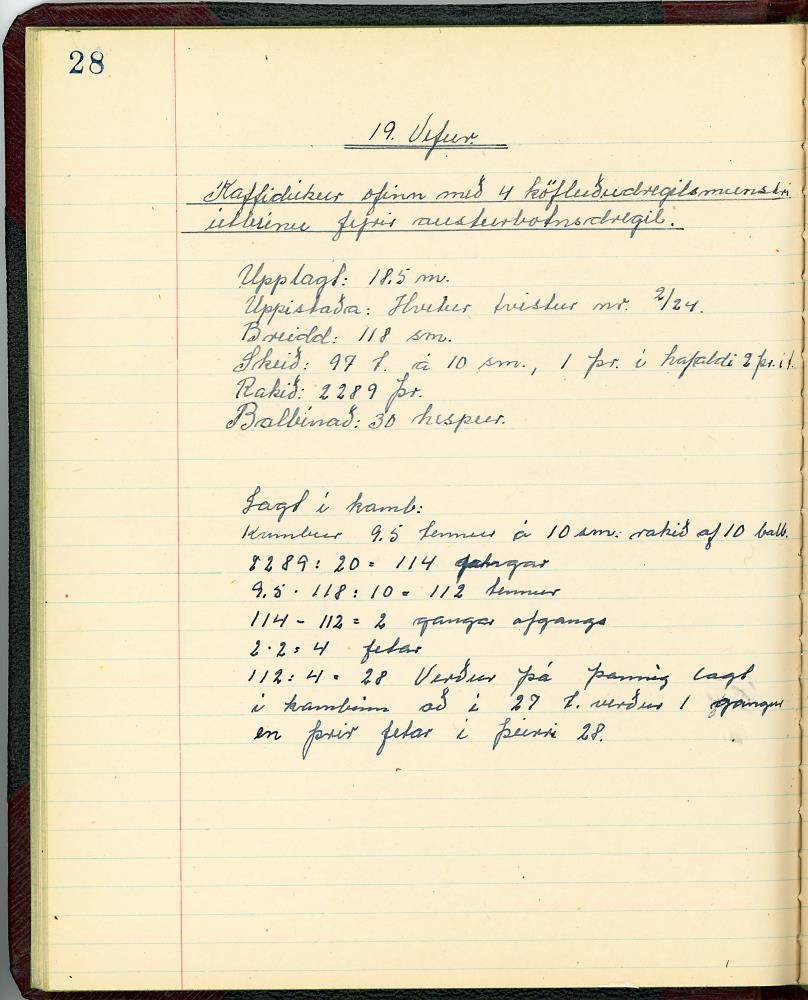 28
19. Vefur.
Kaffidúkur ofinn með 4 köfluðudregilsmunstri
útbúnu fyrir austurbotnsdregil.
Upplagt: 18.5 m.
Uppistaða: Hvítur tvistur nr. 2/24.
Breidd: 118 sm.
Skeið: 97 t. á 10 sm., 1 þr. í hafaldi 2 þr. í t.
Rakið: 2289 þr.
Balbínað: 30 hespur.
Lagt í kamb:
Kambur 9.5 tennur á 10 sm. rakið af 10 balb.
2289 : 20 = 114 gangar
9.5 · 118 : 10 = 112 tennur
114 - 112 = 2 gangar afgangs
2 · 2 = 4 fetar
112 : 4 = 28 Verður þá þannig lagt
í kambinn að í 27 t. verður 1 gangur
en þrír fetar í þeirri 28.